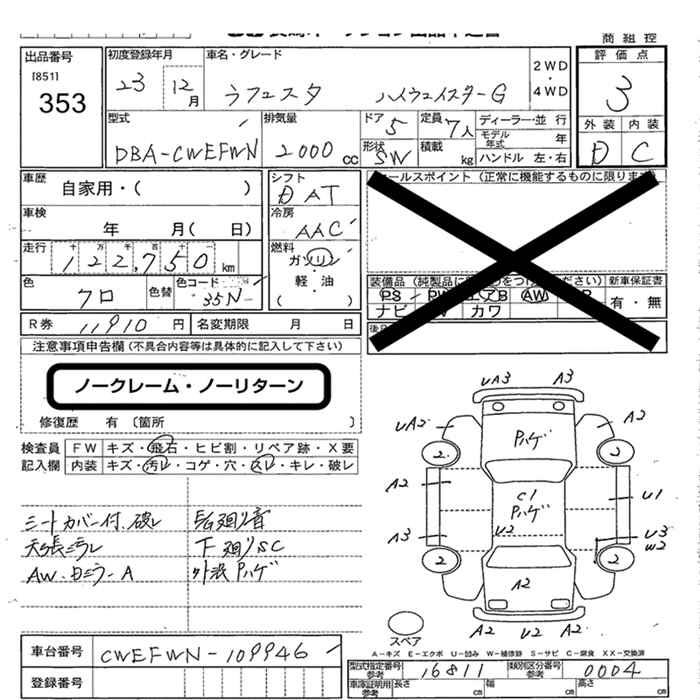 商 組 控
出品番号
[851]
353
初度登録年月
23 12月
車名・グレード
ラフェスタ ハイウェイスターG
2WD
・
4WD
評価点
3
外装 内装
D C
型式
DBA-CWEFWN
排気量
2000 cc
ドア 5
形状 SW
定員 7人
積載 kg
ディーラー・並 行
モデル年式 年
ハンドル 左・右
車歴 自家用・( )
シフト
DAT
車検 年 月( 日)
冷房
AAC
走行 122,750 km
燃料
ガソリン
・
軽・油
( )
色 クロ
色替
色コードNo.
35N
セールスポイント (正常に機能するものに限ります)
装備品 (純製品に つをつけ ださい) 新車保証書
PS PW エアB AW
ナビ カワ
有・無
R券 11910 円 名変期限 月 日
注意事項申告欄 (不具合内容等は具体的に記入して下さい)
ノークレーム・ノーリターン
修復歴 有 〔箇所 〕
検査員記入欄
FW キズ・飛石・ヒビ割・リペア跡・X要
内装 キズ・汚レ・コゲ・穴・スレ・キレ・破レ
シートカバー付、破レ
天張ミラレ
AW.日ミラーA
下廻りSC
外装Pハゲ
UA3 A3
UA2 A2
Pハゲ
2 2
A2
C1
Pハゲ
U1
A3
U2
U3
W2
2 2
A2
スペア
A2 U2 A2
A-キズ E-エクボ U-凹み W-補修跡 S-サビ C-腐食 XX-交換済
車台番号 CWEFWN-109946
登録番号
型式指定番号 参考 16811 類別区分番号 参考 0004
車庫証明用 参考 長さ cm 幅 cm 高さ cm